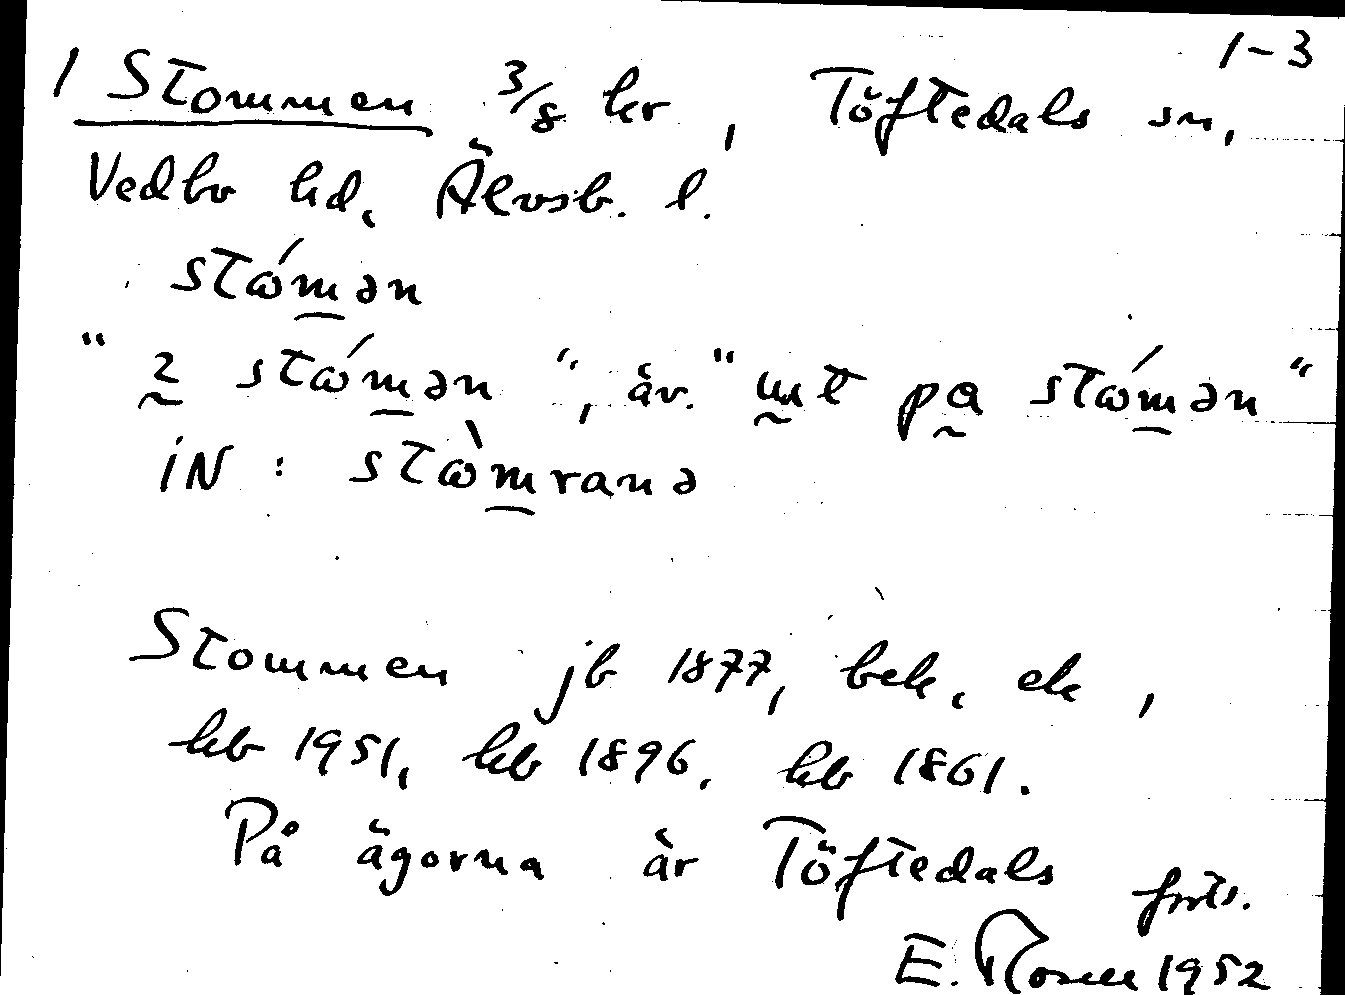 1-3
1 Stommen 3/8 kr, Töftedals sn,
Vedbo hd, Älvsb. l.
stώmən
"ı stώmən", äv. "ɯt pa stώmən"
iN: stὼmranə
Stommen jb 1877, bek, ek,
kb 1951, kb 1896, kb 1861.
På ägorna är Töftedals forts.
E. 1952